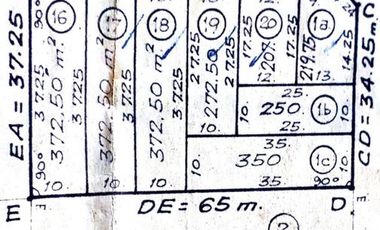 EA = 37.25
90°
16
372.50 m.²
37.25
37.25
10.
90°
17
372.50 m.²
37.25
10.
18
372.50 m.²
10.
19
27.25
272.50
27.25
10.
20
17.25
207.
17.25
12.
1a
219.75
14.25
13.
C
CD = 34.25 m.
25.
10.
250
1b
10.
25.
35.
10.
350
1c
10.
35.
90°
E
DE = 65 m.
D
E
2